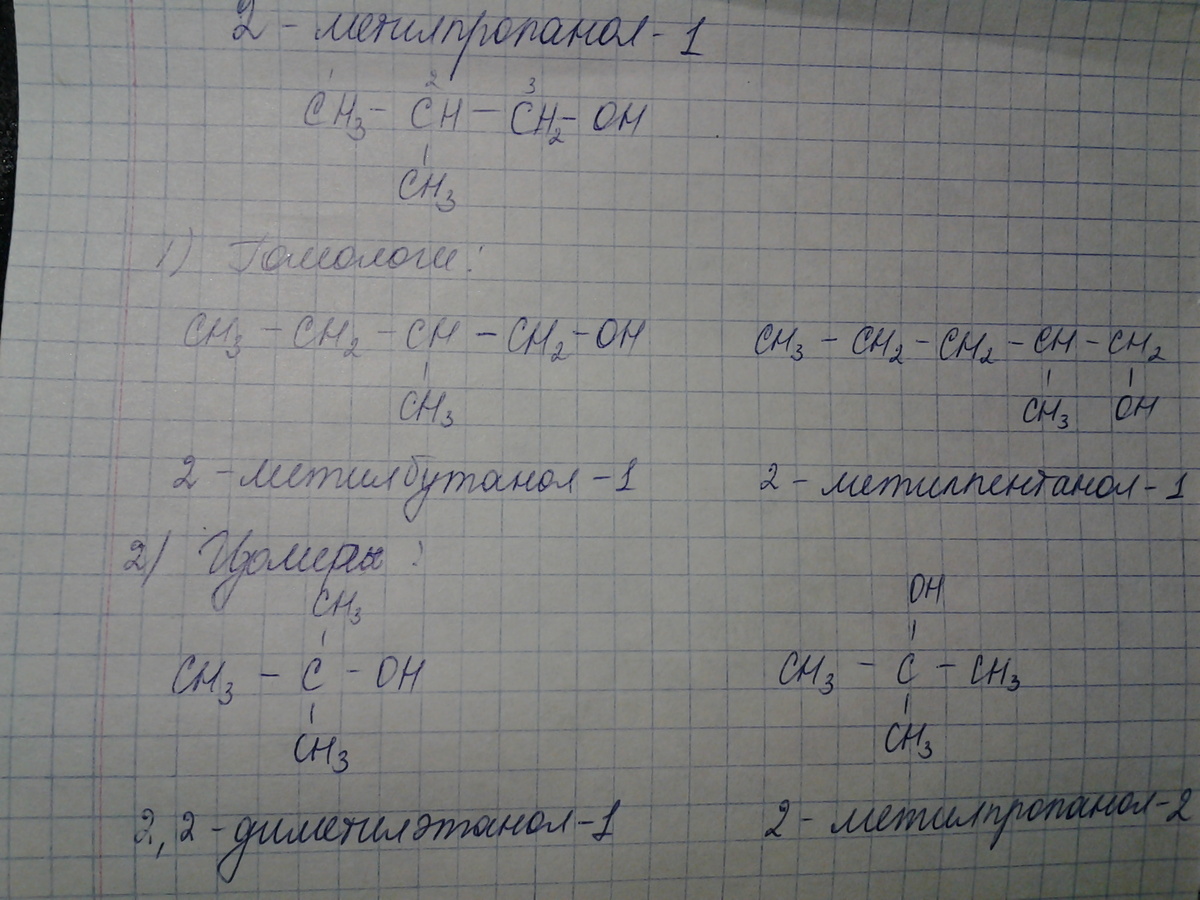 2 - метилпропанол - 1
1 2 3
CH3 - CH - CH2 - OH
CH3
1) Гомологи:
CH3 - CH2 - CH - CH2 - OH
CH3
2 - метилбутанол - 1
CH3 - CH2 - CH2 - CH - CH2
CH3 OH
2 - метилпентанол - 1
2) Изомеры:
CH3
CH3 - C - OH
CH3
2,2 - диметилэтанол - 1
OH
CH3 - C - CH3
CH3
2 - метилпропанол - 2